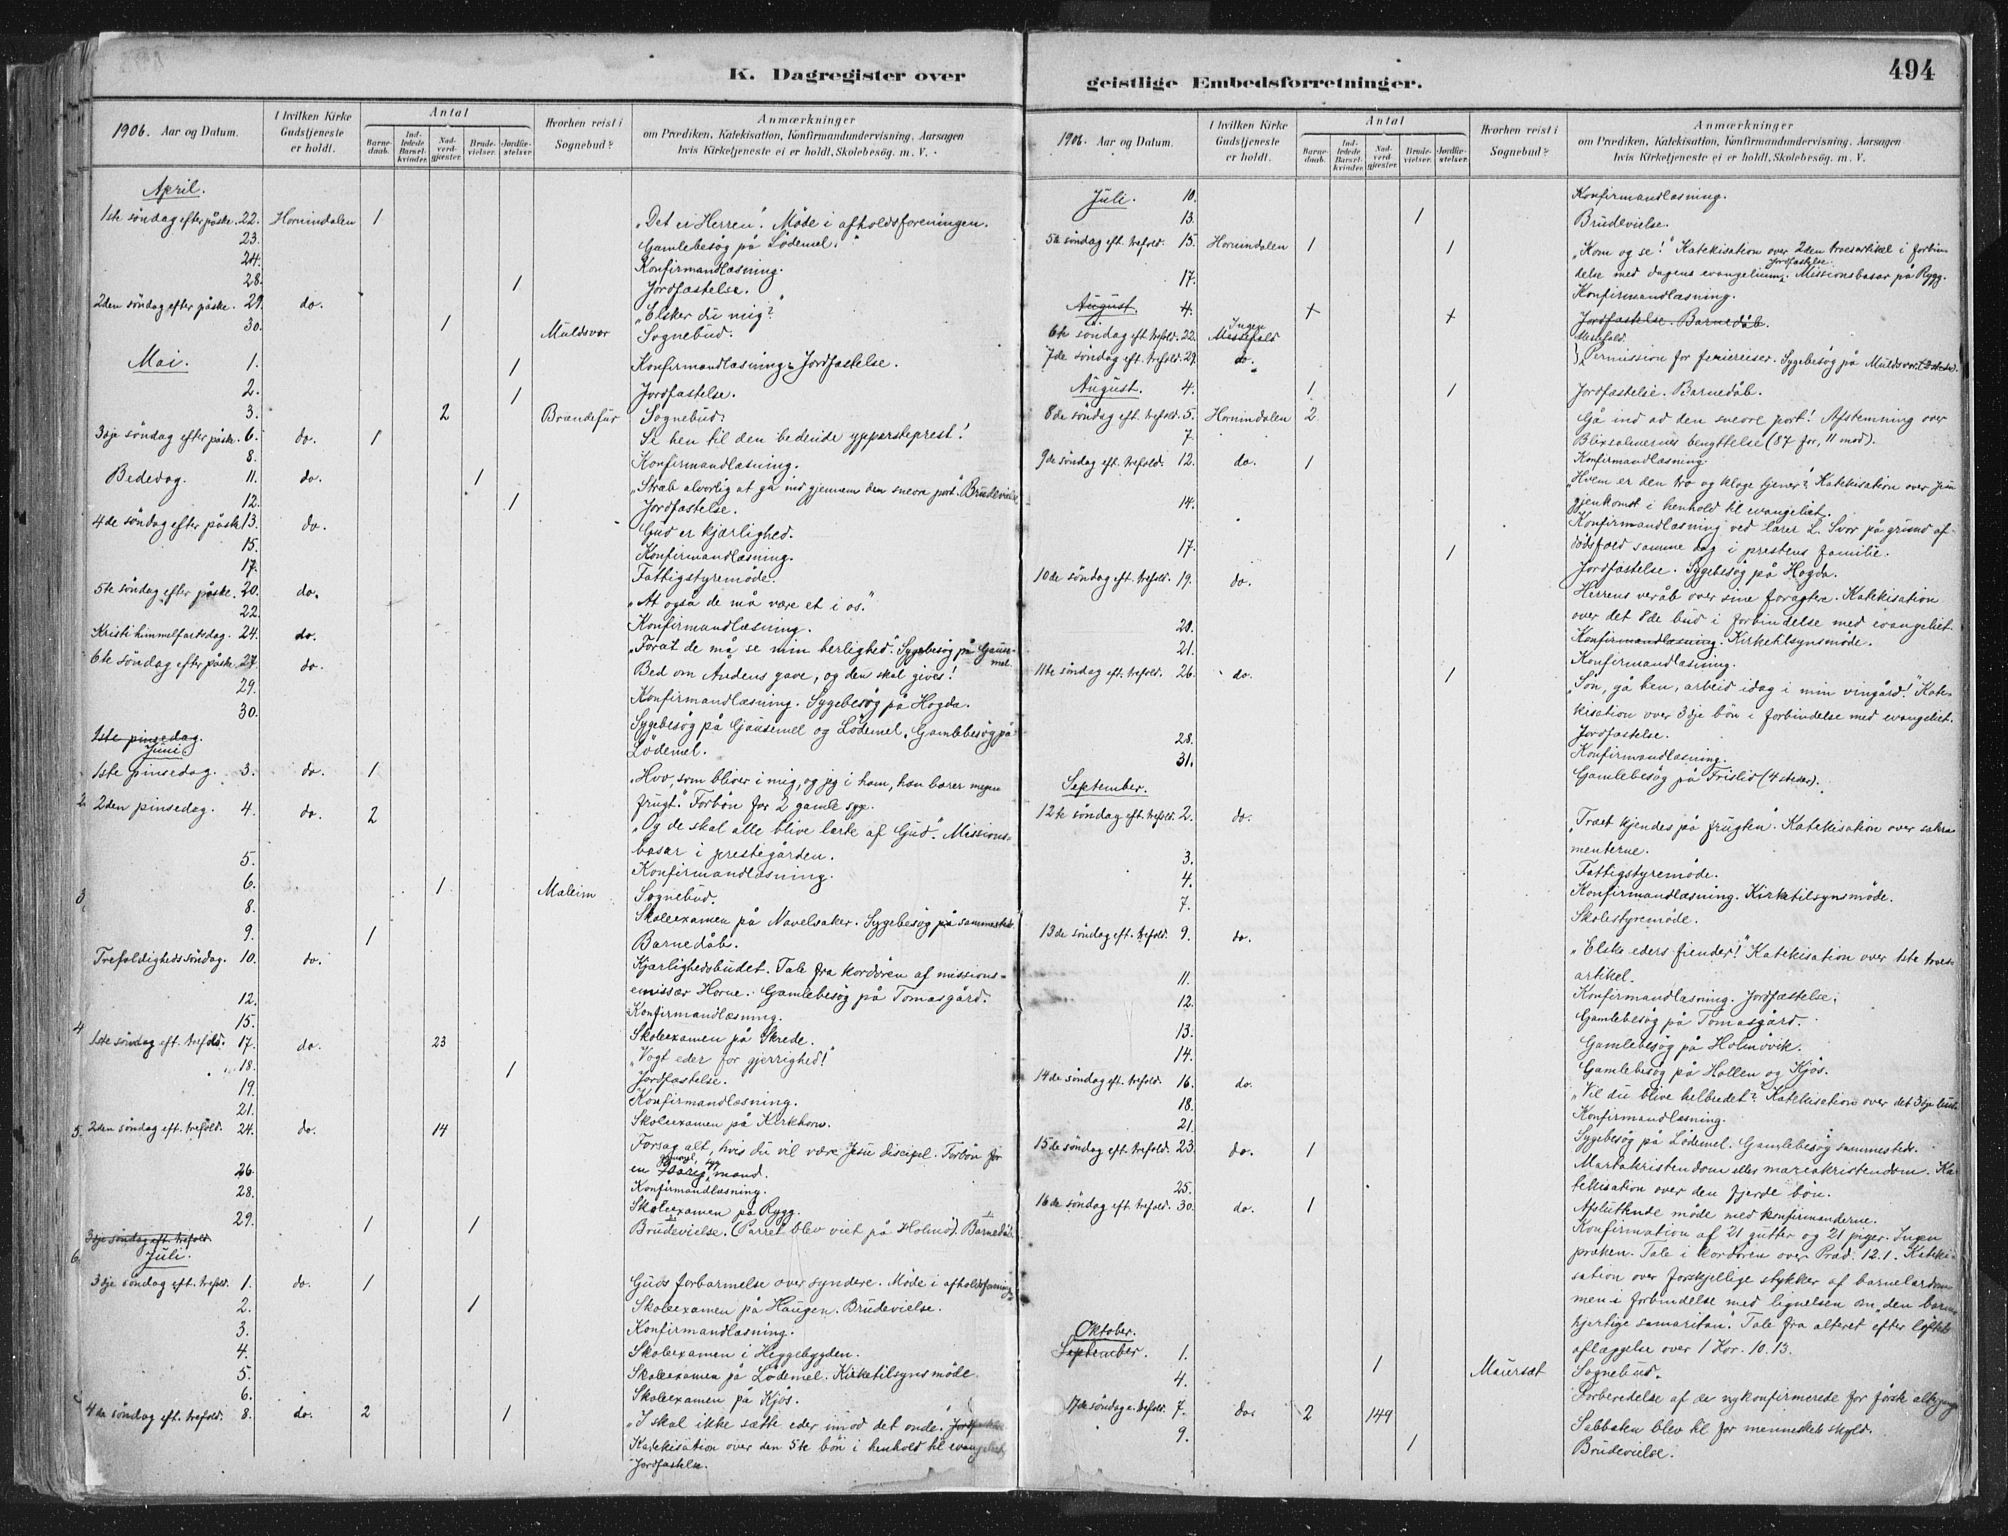 K. Dagregister over
1906. Aar og Datum.
I hvilken Kirke Gudstjeneste er holdt.
Antal
Barnedaab.
Indledede Barselkvinder.
Nadverdgjester.
Brudevielser.
Jordfæstelser.
Hvorhen reist i Sognebud?
Anmærkninger
om Prædiken, Katekisation, Konfirmandundervisning, Aarsagen
hvis Kirketjeneste ei er holdt, Skolebesøg. m. V.
April.
1ste søndag efter påske. 22. Hornindalen 1 „Det er Herren". Møde i afholdsforeningen.
23. Gamlebesøg på Lødemel.
24. Konfirmandlæsning.
28. 1 Jordfæstelse.
2den søndag efter påske. 29. do. „Elsker du mig?"
30. 1 Muldsvor Sognebud.
Mai. 1. 1 Konfirmandlæsning. Jordfæstelse.
2. 1 Jordfæstelse.
3. 2 Brændefur Sognebud.
3dje søndag efter påske. 6. do. 1 Se hen til den bedende ypperstepræst!
8. Konfirmandlæsning.
Bededag. 11. do. 1 „Stræb alvorlig at gå ind gjennem den snevre port." Brudevielse
12. 1 Jordfæstelse.
4de søndag efter påske 13. do. Gud er kjærlighed.
15. Konfirmandlæsning.
17. Fattigstyremøde.
5te søndag efter påske. 20. do. „At også de må være et i os."
22. Konfirmandlæsning.
Kristi himmelfartsdag. 24. do. „Forat de må se min herlighed." Sygebesøg på Gausemel.
6te søndag efter påske. 27. do. Bed om Andens gave, og den skal gives!
29. Konfirmandlæsning. Sygebesøg på Hogda.
30. Sygebesøg på Gausemel og Lødemel. Gamlebesøg på
Lødemel.
1ste pinsedag.
Juni.
1ste pinsedag. 3. do. 1 „Hvo, som bliver i mig, og jeg i ham, han bærer megen
frugt." Forbøn for 2 gamle syge.
2den pinsedag. 4. do. 2 „Og de skal alle blive lærte af Gud." Missions-
basar i prestegården.
5. Konfirmandlæsning.
6. 1 Maleim Sognebud.
8. Skoleexamen på Navelsaker. Sygebesøg på sammested.
9. 1 Barnedåb.
Trefoldighedssøndag. 10. do. Kjærlighedsbudet. Tale fra kordøren af missions-
emissær Horne. Gamlebesøg på Tomasgård.
12. Konfirmandlæsning.
15. Skoleexamen på Skrede.
1ste søndag eft. trefold. 17. do. 23 „Vogt eder for gjerrighed!"
18. 1 Jordfæstelse.
19. Konfirmandlæsning.
21. Skoleexamen på Kirkhorn.
2den søndag eft. trefold. 24. do. 14 Forsag alt, hvis du vil være Jesu discipel. Forbøn for
en mand.
26. Konfirmandlæsning.
28. Skoleexamen på Rygg.
29. 1 1 Brudevielse. (Parret blev viet på Holmø). Barnedåb.
3dje søndag eft. trefold.
Juli.
3dje søndag eft. trefold. 1. do. 1 Guds forbarmelse over syndere. Møde i afholdsforening
2. 1 Skoleexamen på Haugen. Brudevielse.
3. Konfirmandlæsning.
4. Skoleexamen i Heggebygden.
5. Skoleexamen på Lødemel. Kirketilsynsmøde.
6. Skoleexamen på Kjøs.
4de søndag eft. trefold. 8. do. 2 1 „I skal ikke sætte eder imod det onde.
Katekisation over den 5te bøn i henhold til evangeliet
Jordfæstelse.
geistlige Embedsforretninger.
494
1906. Aar og Datum.
I hvilken Kirke Gudstjeneste er holdt.
Antal
Barnedaab.
Indledede Barselkvinder.
Nadverdgjester.
Brudevielser.
Jordfæstelser.
Hvorhen reist i Sognebud?
Anmærkninger
om Prædiken, Katekisation, Konfirmandundervisning, Aarsagen
hvis Kirketjeneste ei er holdt, Skolebesøg. m. V.
Juli. 10. Konfirmandlæsning.
13. 1 Brudevielse.
5te søndag eft. trefold. 15. Hornindalen 1 1 „Kom og se!" Katekisation over 2den troesartikel i forbin-
delse med dagens evangelium. Jordfæstelse. Missionsbasar på Rygg.
17. Konfirmandlæsning.
August. 4. + + Jordfæstelse. Barnedåb.
6te søndag eft. trefold. 22. Ingen Messefald
Messefald.
7de søndag eft. trefold. 29. do. Permission for ferierreiser. Sygebesøg på Muldsvor (2 steder).
August. 4. 1 1 Jordfæstelse. Barnedåb.
8de søndag eft. trefold. 5. Hornindalen 2 Gå ind ad den snevre port! Afstemning over
Blixsalmernes benyttelse (87 for, 11 mod).
7. Konfirmandlæsning.
9de søndag eft. trefold. 12. do. 1 „Hvem er den tro og kloge tjener?" Katekisation over Jesu
gjenkomst i henhold til evangeliet.
14. Konfirmandlæsning ved lærer L. Svor på grund af
dødsfald samme dag i prestens familie.
17. 1 Jordfæstelse. Sygebesøg på Hogda.
10de søndag eft. trefold. 19. do. Herrens veråb over sine foragtere. Katekisation
over det 8de bud i forbindelse med evangeliet.
20. Konfirmandlæsning. Kirketilsynsmøde.
21. Konfirmandlæsning.
11te søndag eft. trefold. 26. do. 1 „Søn, gå hen, arbeid idag i min vingård!" Kate-
kisation over 3dje bøn i forbindelse med evangeliet.
Jordfæstelse.
28. Konfirmandlæsning.
31. Gamlebesøg på Frislid (4 steder).
September.
12te søndag eft. trefold. 2. do. „Træet kjendes på frugten. Katekisation over sakra-
menterne.
3. Fattigstyremøde.
4. Konfirmandlæsning. Kirketilsynsmøde.
7. Skolestyremøde.
13de søndag eft. trefold. 9. do. „Elske eders fiender!" Katekisation over 1ste troes-
artikel.
11. Konfirmandlæsning. Jordfæstelse.
12. Gamlebesøg på Tomasgård.
13. Gamlebesøg på Holmøvik.
14. Gamlebesøg på Hollen og Kjøs.
14de søndag eft. trefold. 16. do. „Vil du blive helbredet?" Katekisation over det 3dje
18. Konfirmandlæsning.
21. Sygebesøg på Lødemel. Gamlebesøg sammesteds.
15de søndag eft. trefold. 23. do. 1 Martakristendom eller mariakristendom. Ka-
tekisation over den fjerde bøn.
25. Afsluttende møde med konfirmanderne.
16de søndag eft. trefold. 30. do. 1 Konfirmation af 21 gutter og 21 piger. Ingen
præken. Tale i kordøren over Præd. 12.1. Kateki-
sation over forskjellige stykker af barnelærdom-
men i forbindelse med lignelsen om „den barm-
hjertige samaritan." Tale fra alteret efter løftets
aflæggelse over 1 Kor. 10.13.
Oktober.
September. 1. 1 Maurset Sognebud.
4. Forberedelse af de nykonfirmerede for første
17de søndag e. trefold. 7. do. 2 144 Sabbaten blev til for menneskets skyld.
9. 1 Brudevielse.